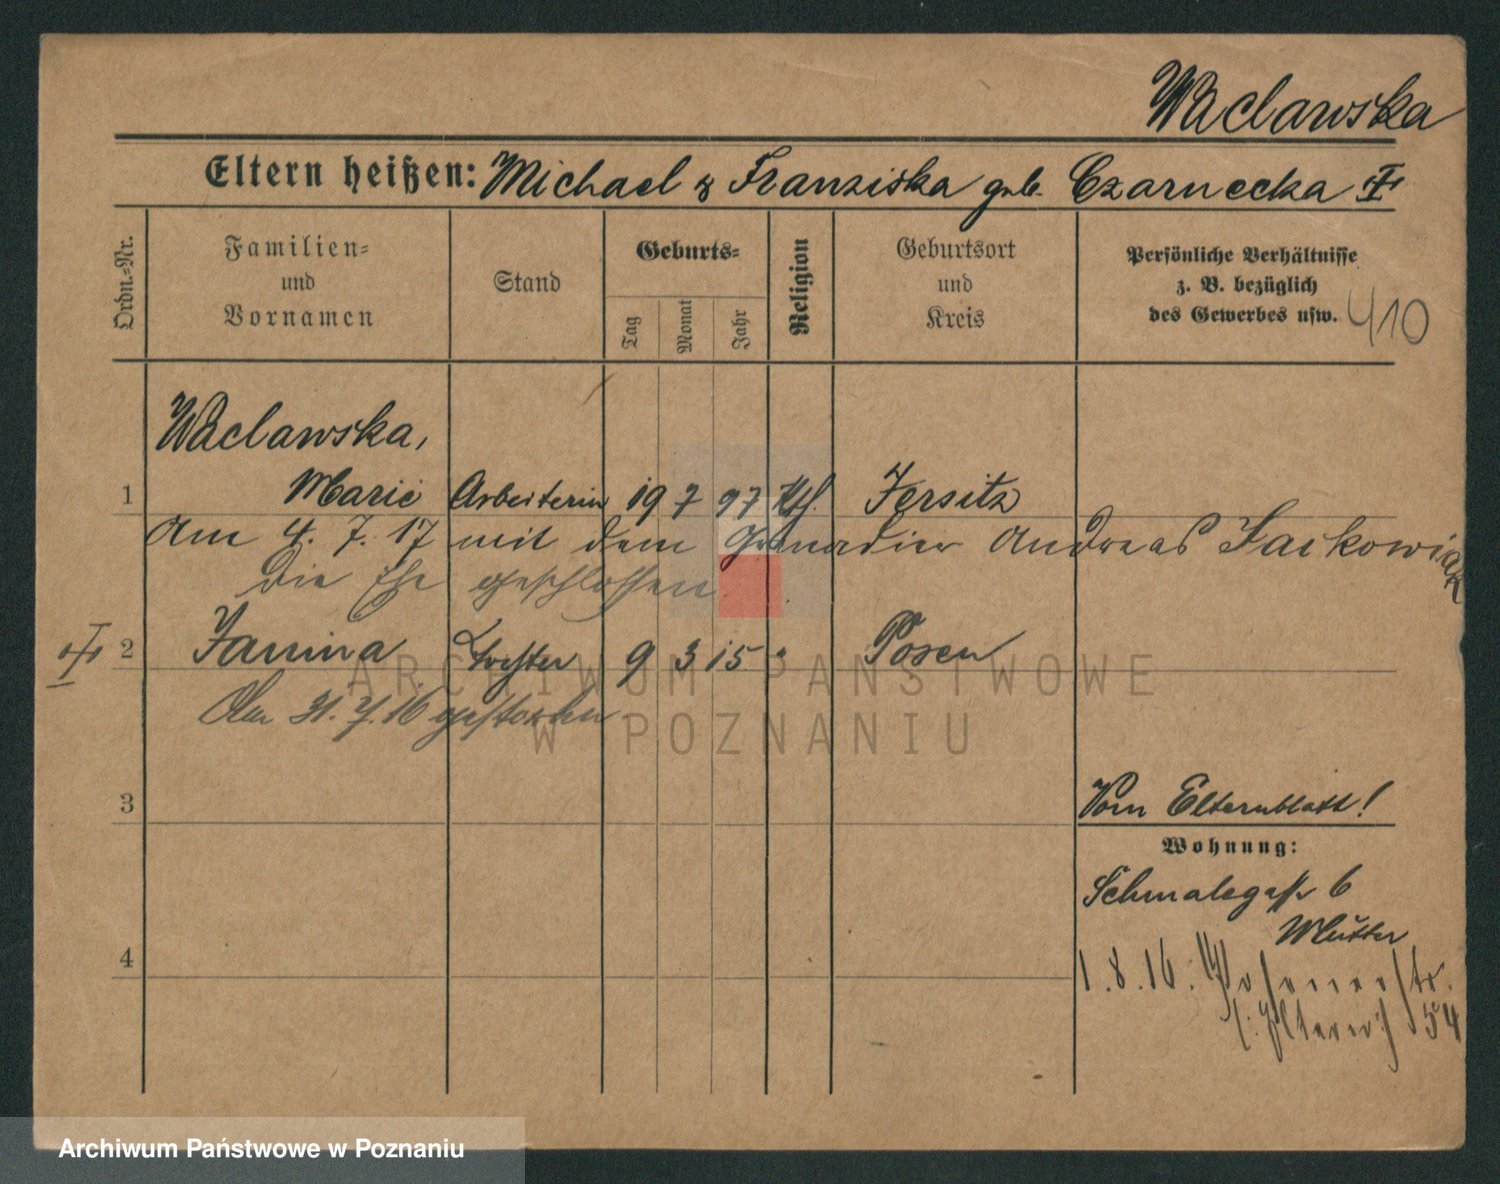 Waclawska
Eltern heißen: Michael & Franziska geb. Czarnecka
Ordn.-Nr.
Familien- und Vornamen
Stand
Geburts-
Tag
Monat
Jahr
Religion
Geburtsort und Kreis
Persönliche Verhältnisse
z. B. bezüglich
des Gewerbes usw.
410
Waclawska,
1 Marie Arbeiterin 19 7 97 Kth. Jersitz
Am 4. 7. 17 mit dem Grenadier Andreas
die Ehe geschlossen
2 Janina Tochter 9 3 15 " Posen
Am 31. 7. 16 gestorben
3
Vom Elternblatt!
Wohnung:
Schmalegasse 6
Mutter
4
1. 8. 16. Posenerstr. 54
(: Eltern :)
ARCHIWUM PAŃSTWOWE
W POZNANIU
Archiwum Państwowe w Poznaniu